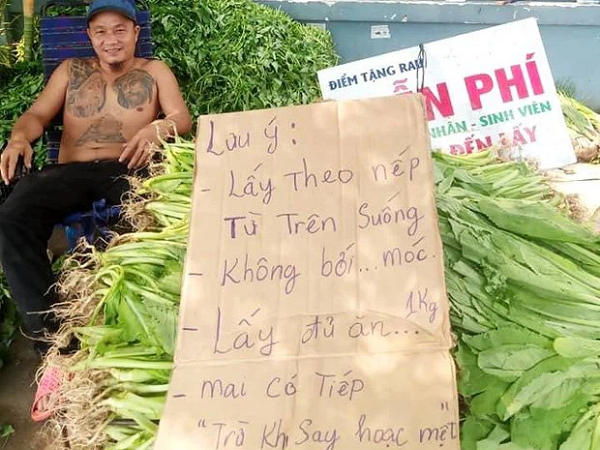 Lưu ý:
- Lấy Theo nếp
Từ Trên Suống
- Không bới... móc.
- Lấy đủ ăn... 1Kg
- mai có Tiếp
"Trừ Khi Say hoặc mệt"
ĐIỂM TẶNG RAU
PHÍ
NHÂN - SINH VIÊN
ĐẾN LẤY